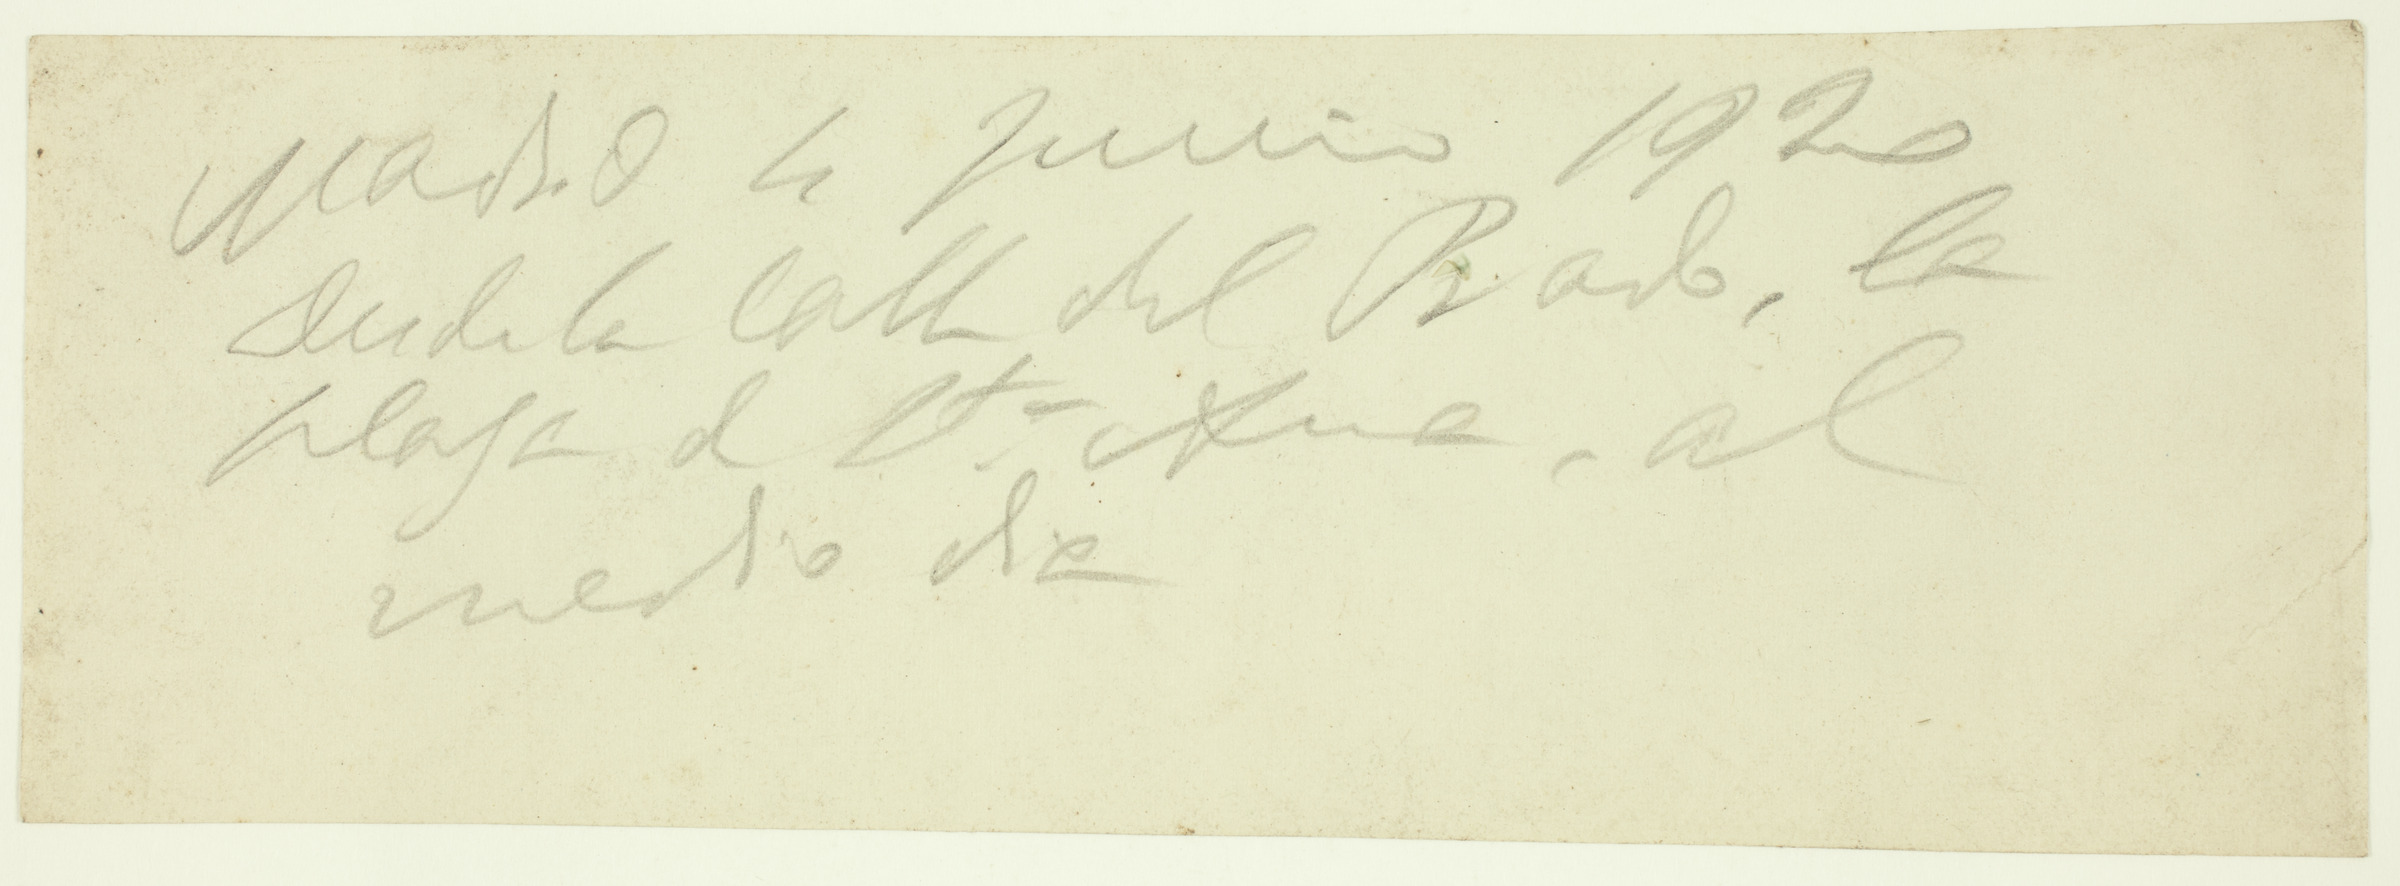 Madrid 4 Junio 1920
desde la calle del Prado, la
plaza de Sta Ana, al
medio dia